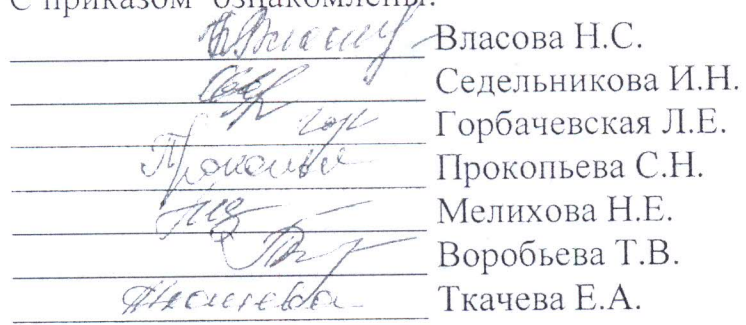 С приказом ознакомлены:
Власова Н.С.
Седельникова И.Н.
Горбачевская Л.Е.
Прокопьева С.Н.
Мелихова Н.Е.
Воробьева Т.В.
Ткачева Е.А.